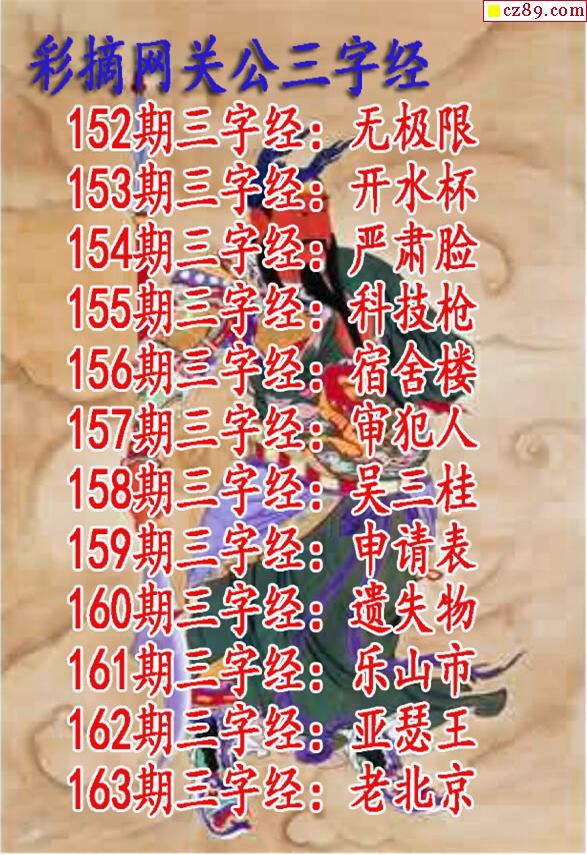 cz89.com
彩摘网关公三字经
152期三字经：无极限
153期三字经：开水杯
154期三字经：严肃脸
155期三字经：科技枪
156期三字经：宿舍楼
157期三字经：审犯人
158期三字经：吴三桂
159期三字经：申请表
160期三字经：遗失物
161期三字经：乐山市
162期三字经：亚瑟王
163期三字经：老北京